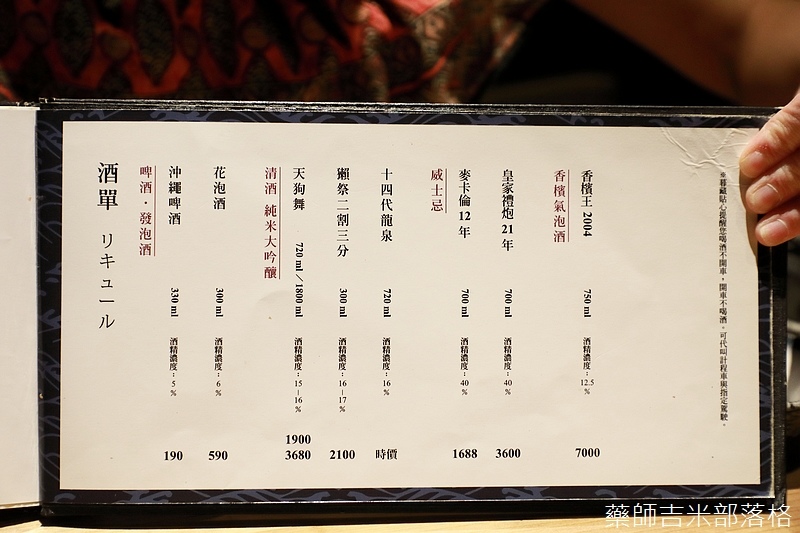 酒單 リキュール
啤酒・發泡酒
沖繩啤酒 330 ml 酒精濃度：5% 190
花泡酒 300 ml 酒精濃度：6% 590
清酒 純米大吟釀
天狗舞 720 ml／1800 ml 酒精濃度：15－16% 1900 3680
獺祭二割三分 300 ml 酒精濃度：16－17% 2100
十四代龍泉 720 ml 酒精濃度：16% 時價
威士忌
麥卡倫12年 700 ml 酒精濃度：40% 1688
皇家禮炮21年 700 ml 酒精濃度：40% 3600
香檳氣泡酒
香檳王 2004 750 ml 酒精濃度：12.5% 7000
※暮藏貼心提醒您喝酒不開車，開車不喝酒。可代叫計程車與指定駕駛。
藥師吉米部落格